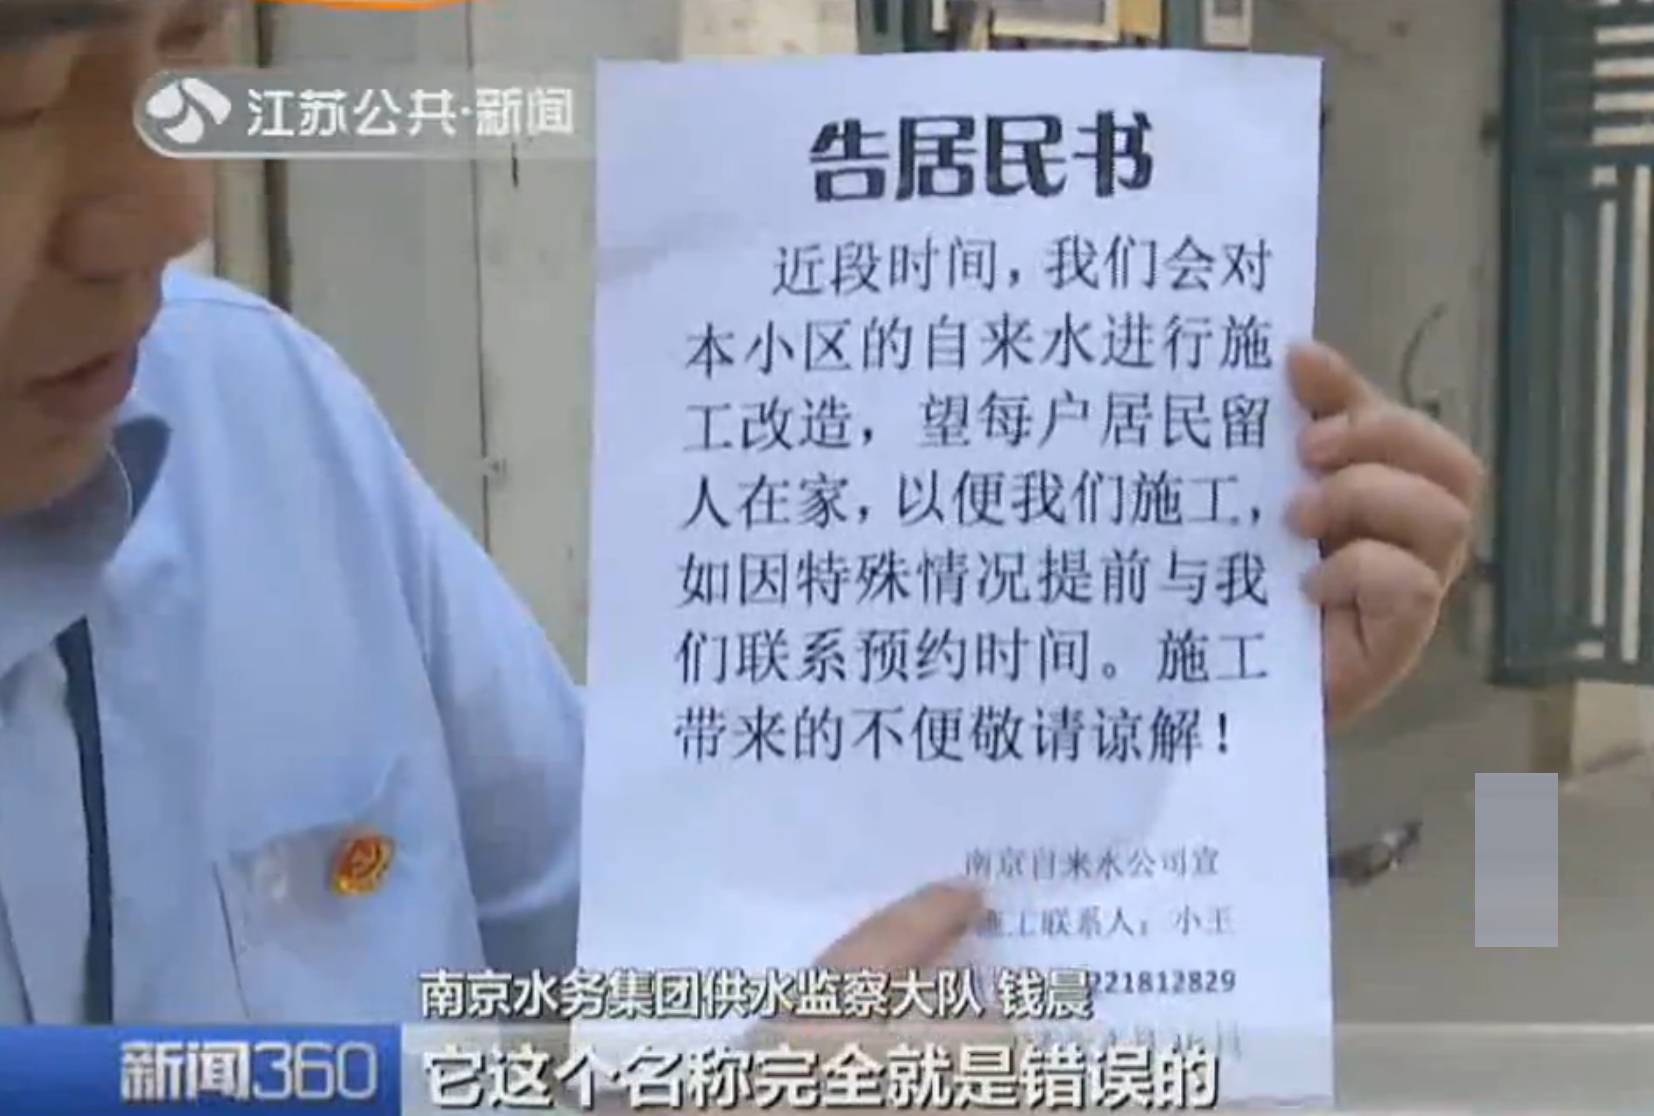 江苏公共·新闻
告居民书
近段时间，我们会对
本小区的自来水进行施
工改造，望每户居民留
人在家，以便我们施工，
如因特殊情况提前与我
们联系预约时间。施工
带来的不便敬请谅解！
南京自来水公司宣
施工联系人：小王
221812829
南京水务集团供水监察大队 钱晨
新闻360
它这个名称完全就是错误的